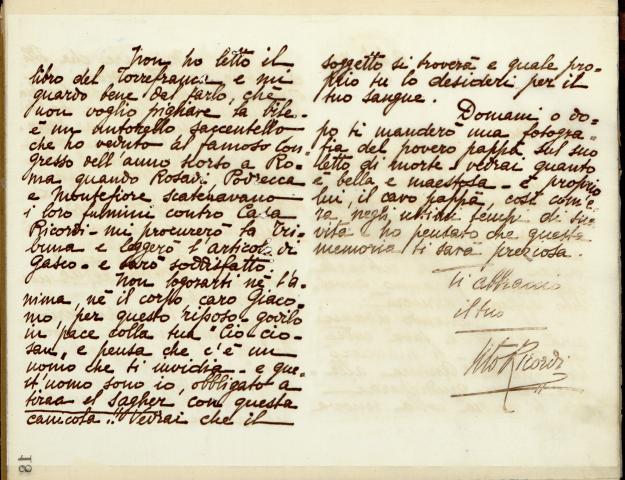 Non ho letto il
libro del Torrefranca e mi
guardo bene dal farlo, chè
non voglio pigliare la bile.
È un autorello saccentello
che ho veduto al famoso Con=
gresso dell'anno scorso a Ro=
ma quando Rosadi Podrecca
e Montefiore scatenavano
i loro fulmini contro Casa
Ricordi - mi procurerò la Tri=
buna e leggerò l'articolo di
Gasco - e sarò soddisfatto
Non logorarti nè l'a=
nima, nè il corpo caro Giaco=
mo per questo riposo - godilo
in pace colla tua "Cio-cio-
san" e pensa che c'è un
uomo che ti invidia - e que=
st'uomo sono io, obbligato a
tiraa el sagher con questa
canicola!! Vedrai che il
soggetto si troverà e quale pro=
prio tu lo desideri per il
tuo sangue.
Domani o do=
po ti manderò una fotogra=
fia del povero pappà sul suo
letto di morte - vedrai quanto
è bella e maestosa - è proprio
lui, il caro pappà, così com'e=
ra negli ultimi tempi di sua
vita - ho pensato che questa
memoria ti sarà preziosa.
Ti abbraccio
il tuo
Tito Ricordi
81